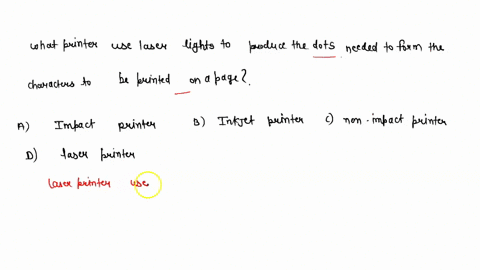 what printer use laser lights to produce the dots needed to form the
characters to be printed on a page?
A) Impact printer B) Inkjet printer C) non-impact printer
D) laser printer
laser printer use